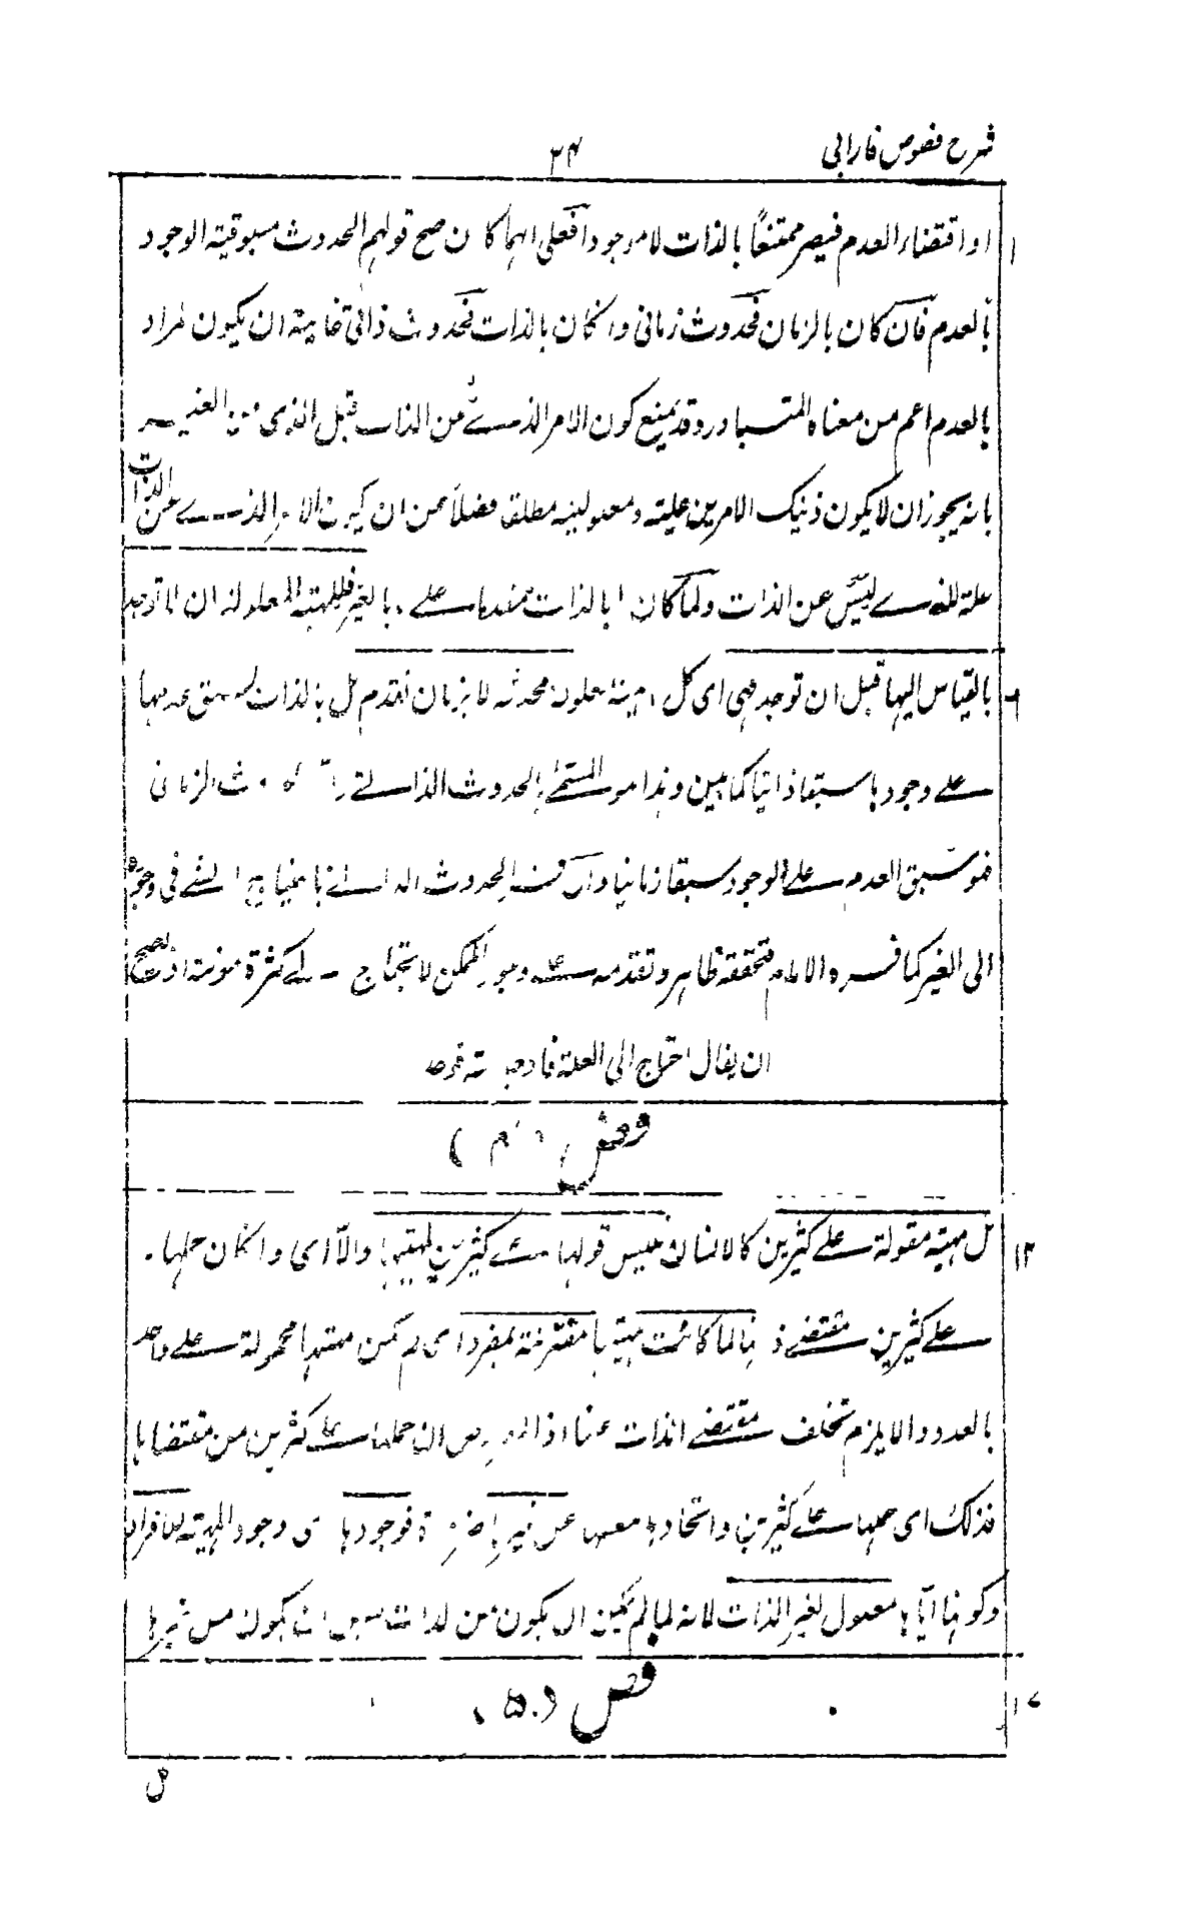 شرح فصوص فارابی
۲۴
۱
او اقتضاء العدم فیصیر ممتنعاً بالذات لا موجودا فعلی ایهما کان صح قولهم الحدوث مسبوقیة الوجود
بالعدم فان کان بالزمان فحدوث زمانی وانکان بالذات فحدوث ذاتی غایته ان یکون المراد
بالعدم اعم من معناه المتبادر وقد یمنع کون الامر الذے من الذات قبل الذی من الغیر
بانه یجوز ان لا یکون ذینک الامرین علیته ومعلولیته مطلق فضلاً عن ان یکون الامر الذے عن الذات
علة للذے لیس عن الذات ولما کان بالذات متقدما علے ما بالغیر فللمهیة المعلولة ان لا توجد
۶
بالقیاس الیها قبل ان توجد فهی ای کل مهیة معلولة محدثة لا بزمان تقدم بل بالذات لسبق عدمها
علے وجودها سبقا ذاتیا کما بین وهذا هو المسمے بالحدوث الذاتے الزمانی
فهو سبق العدم علے الوجود سبقا زمانیا وان فسر الحدوث الذاتے باحتیاج الشئے فی وجوده
الی الغیر کما فسره الامام فتحققه ظاهر وتقدمه علے وجود الممکن لا یحتاج الے کثرة مؤنة اذ یصح
ان یقال احتاج الی العلة فاوجدته
فص (۴)
۱۲
کل مهیة مقولة علے کثیرین کالانسان فلیس قولها علے کثیرین لمهیتها والا ای وانکان حملها
علے کثیرین مقتضے ذاتها لما کانت مهیة ما مقترنة بمفرد ای لم یکن مهیتها محمولة علے واحد
بالعدد والا یلزم تخلف مقتضے الذات عنها اذ المفروض ان حملها علے کثیرین من مقتضاها
فذلک ای حملها علے کثیرین واتحادها معها عن غیرها فوجودها ای وجود المهیة للافراد
وکونها ایاها معلول لغیر الذات لانه لما لم یکن ان یکون من الذات ان یکون من غیرها
۱۷
فص (۵)